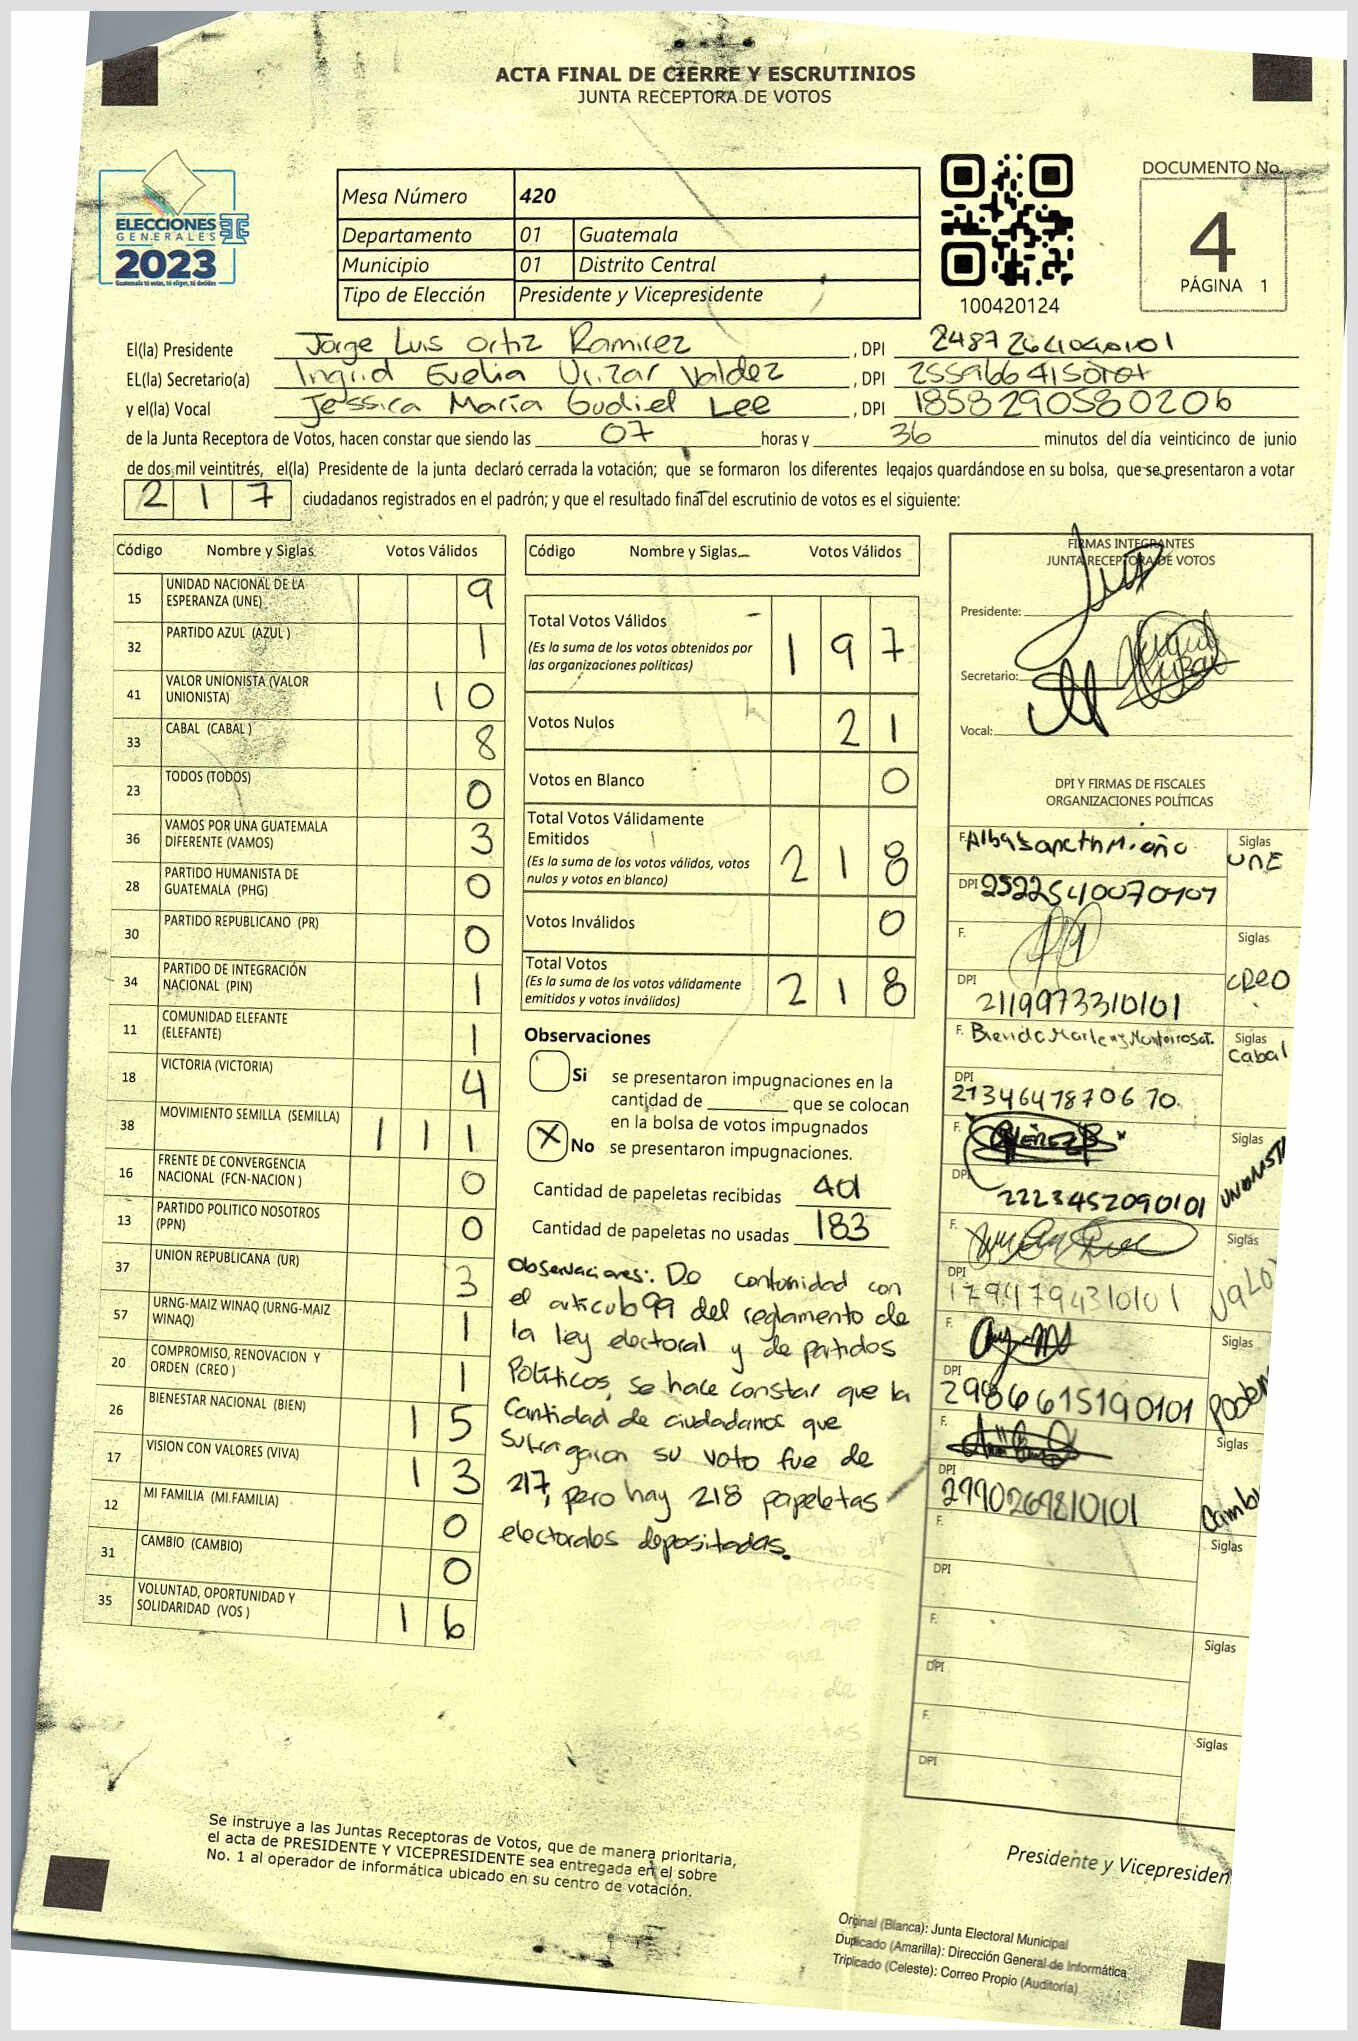 ACTA FINAL DE CIERRE Y ESCRUTINIOS
JUNTA RECEPTORA DE VOTOS
ELECCIONES
GENERALES
2023
Guatemala tú votas, tú eliges, tú decides
Mesa Número 420
Departamento 01 Guatemala
Municipio 01 Distrito Central
Tipo de Elección Presidente y Vicepresidente
100420124
DOCUMENTO No.
4
PÁGINA 1
El(la) Presidente Jorge Luis Ortiz Ramirez, DPI
EL(la) Secretario(a) Ingrid Evelia Urizar Valdez, DPI
y el(la) Vocal Jessica María Gudiel Lee, DPI 1858290580206
de la Junta Receptora de Votos, hacen constar que siendo las 07 horas y 36 minutos del día veinticinco de junio
de dos mil veintitrés, el(la) Presidente de la junta declaró cerrada la votación; que se formaron los diferentes legajos guardándose en su bolsa, que se presentaron a votar
217 ciudadanos registrados en el padrón; y que el resultado final del escrutinio de votos es el siguiente:
Código Nombre y Siglas Votos Válidos
15 UNIDAD NACIONAL DE LA ESPERANZA (UNE) 9
32 PARTIDO AZUL (AZUL ) 1
41 VALOR UNIONISTA (VALOR UNIONISTA) 10
33 CABAL (CABAL ) 8
23 TODOS (TODOS) 0
36 VAMOS POR UNA GUATEMALA DIFERENTE (VAMOS) 3
28 PARTIDO HUMANISTA DE GUATEMALA (PHG) 0
30 PARTIDO REPUBLICANO (PR) 0
34 PARTIDO DE INTEGRACIÓN NACIONAL (PIN) 1
11 COMUNIDAD ELEFANTE (ELEFANTE) 1
18 VICTORIA (VICTORIA) 4
38 MOVIMIENTO SEMILLA (SEMILLA) 111
16 FRENTE DE CONVERGENCIA NACIONAL (FCN-NACION ) 0
13 PARTIDO POLITICO NOSOTROS (PPN) 0
37 UNION REPUBLICANA (UR) 3
57 URNG-MAIZ WINAQ (URNG-MAIZ WINAQ) 1
20 COMPROMISO, RENOVACION Y ORDEN (CREO ) 1
26 BIENESTAR NACIONAL (BIEN) 15
17 VISION CON VALORES (VIVA) 13
12 MI FAMILIA (MI FAMILIA) 0
31 CAMBIO (CAMBIO) 0
35 VOLUNTAD, OPORTUNIDAD Y SOLIDARIDAD (VOS ) 16
Código Nombre y Siglas Votos Válidos
Total Votos Válidos 197
(Es la suma de los votos obtenidos por
las organizaciones políticas)
Votos Nulos 21
Votos en Blanco 0
Total Votos Válidamente
Emitidos 218
(Es la suma de los votos válidos, votos
nulos y votos en blanco)
Votos Inválidos 0
Total Votos 218
(Es la suma de los votos válidamente
emitidos y votos inválidos)
Observaciones
Si se presentaron impugnaciones en la
cantidad de ________ que se colocan
en la bolsa de votos impugnados
X No se presentaron impugnaciones.
Cantidad de papeletas recibidas 401
Cantidad de papeletas no usadas 183
Observaciones: De conformidad con
el articulo 99 del reglamento de
la ley electoral y de partidos
Políticos, se hace constar que la
Cantidad de ciudadanos que
sufragaron su voto fue de
217, pero hay 218 papeletas
electorales depositadas.
FIRMAS INTEGRANTES
JUNTA RECEPTORA DE VOTOS
Presidente:
Secretario:
Vocal:
DPI Y FIRMAS DE FISCALES
ORGANIZACIONES POLÍTICAS
F. Siglas UNE
DPI 2522540070101
F. Siglas CREO
DPI 2119973310101
F. Siglas Cabal
DPI 2134641870670
F. Siglas UNIONISTA
DPI 2223452090101
F. Siglas VALOR
DPI 17941794310101
F. Siglas Podemos
DPI 2986615190101
F. Siglas
DPI 2990269810101
F. Siglas
DPI
F. Siglas
DPI
F. Siglas
DPI
Se instruye a las Juntas Receptoras de Votos, que de manera prioritaria,
el acta de PRESIDENTE Y VICEPRESIDENTE sea entregada en el sobre
No. 1 al operador de informática ubicado en su centro de votación.
Presidente y Vicepresiden
Original (Blanca): Junta Electoral Municipal
Duplicado (Amarilla): Dirección General de Informática
Triplicado (Celeste): Correo Propio (Auditoría)